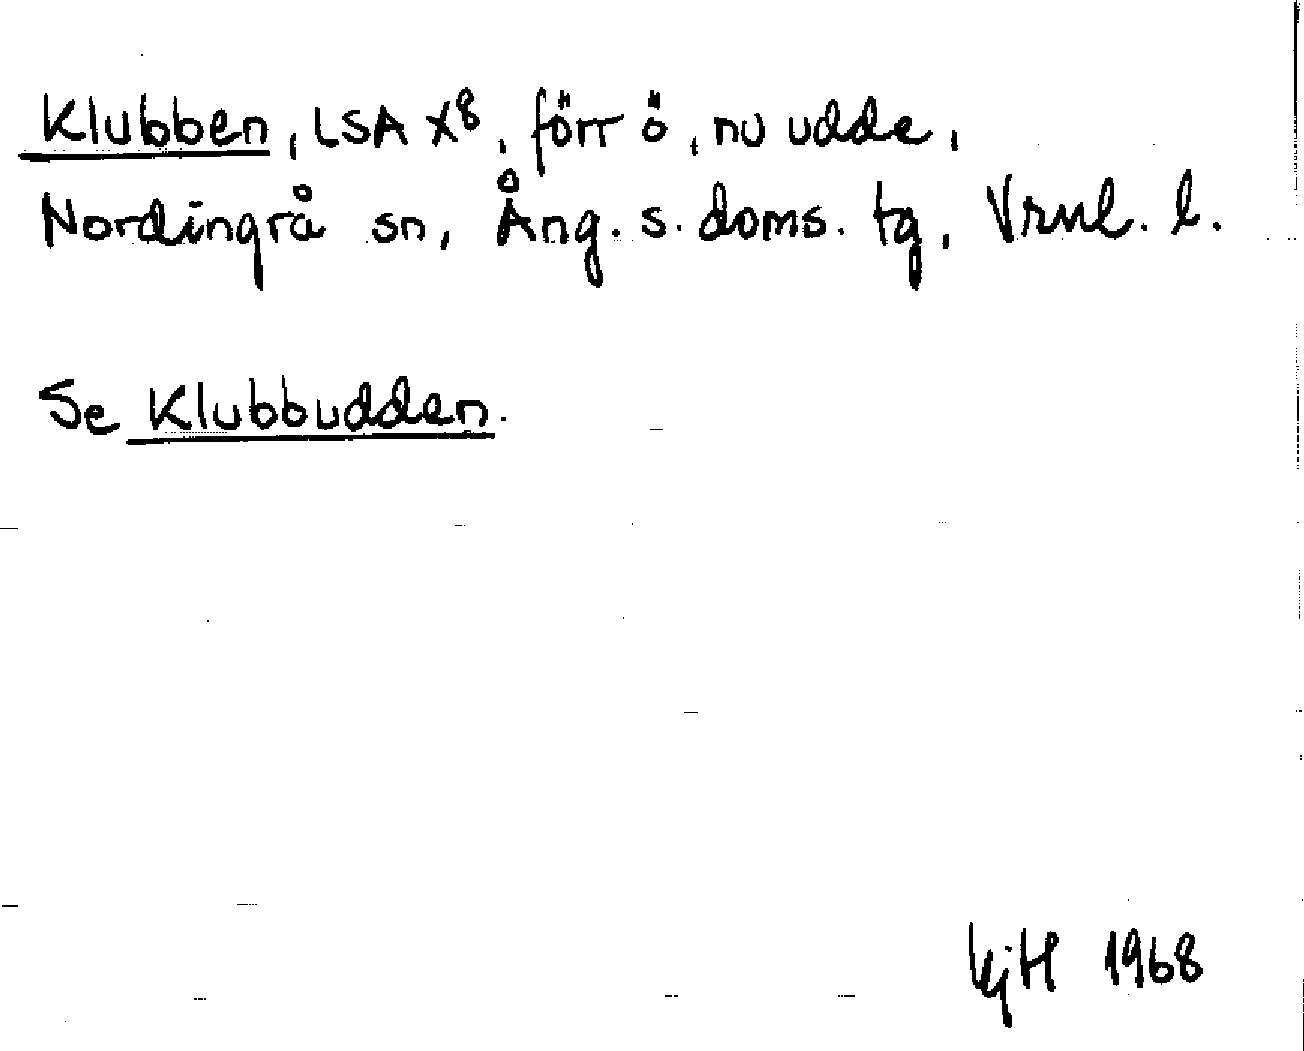 Klubben, LSA X8, förr ö, nu udde,
Nordingrå sn, Ång. s. doms. tg, Vrnl. l.
Se Klubbudden.
KjH 1968